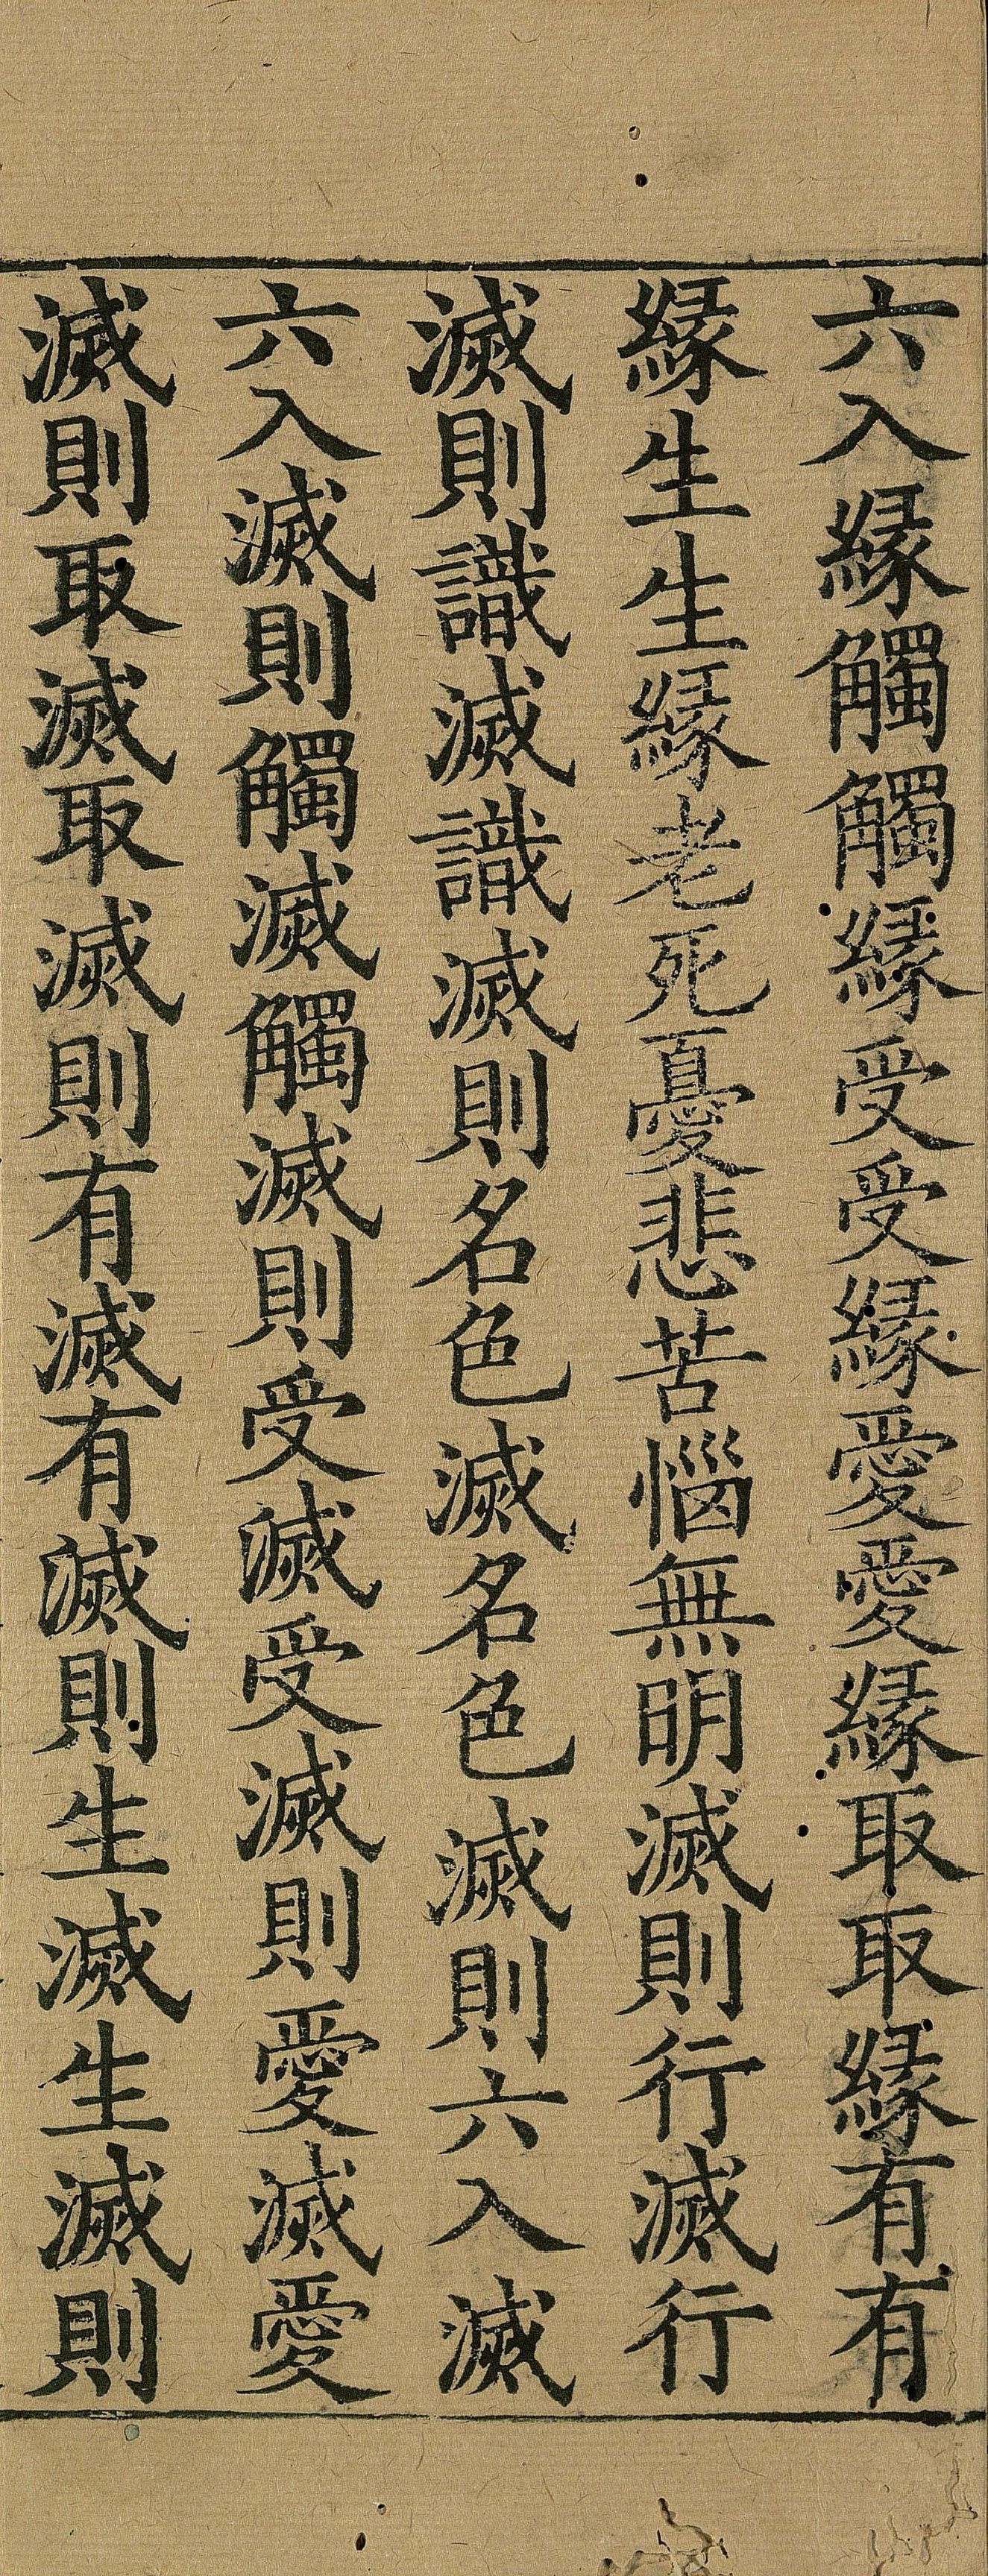 六入縁觸觸縁受受縁愛愛縁取取縁有有
縁生生縁老死憂悲苦惱無明滅則行滅行
滅則識滅識滅則名色滅名色滅則六入滅
六入滅則觸滅觸滅則受滅受滅則愛滅愛
滅則取滅取滅則有滅有滅則生滅生滅則